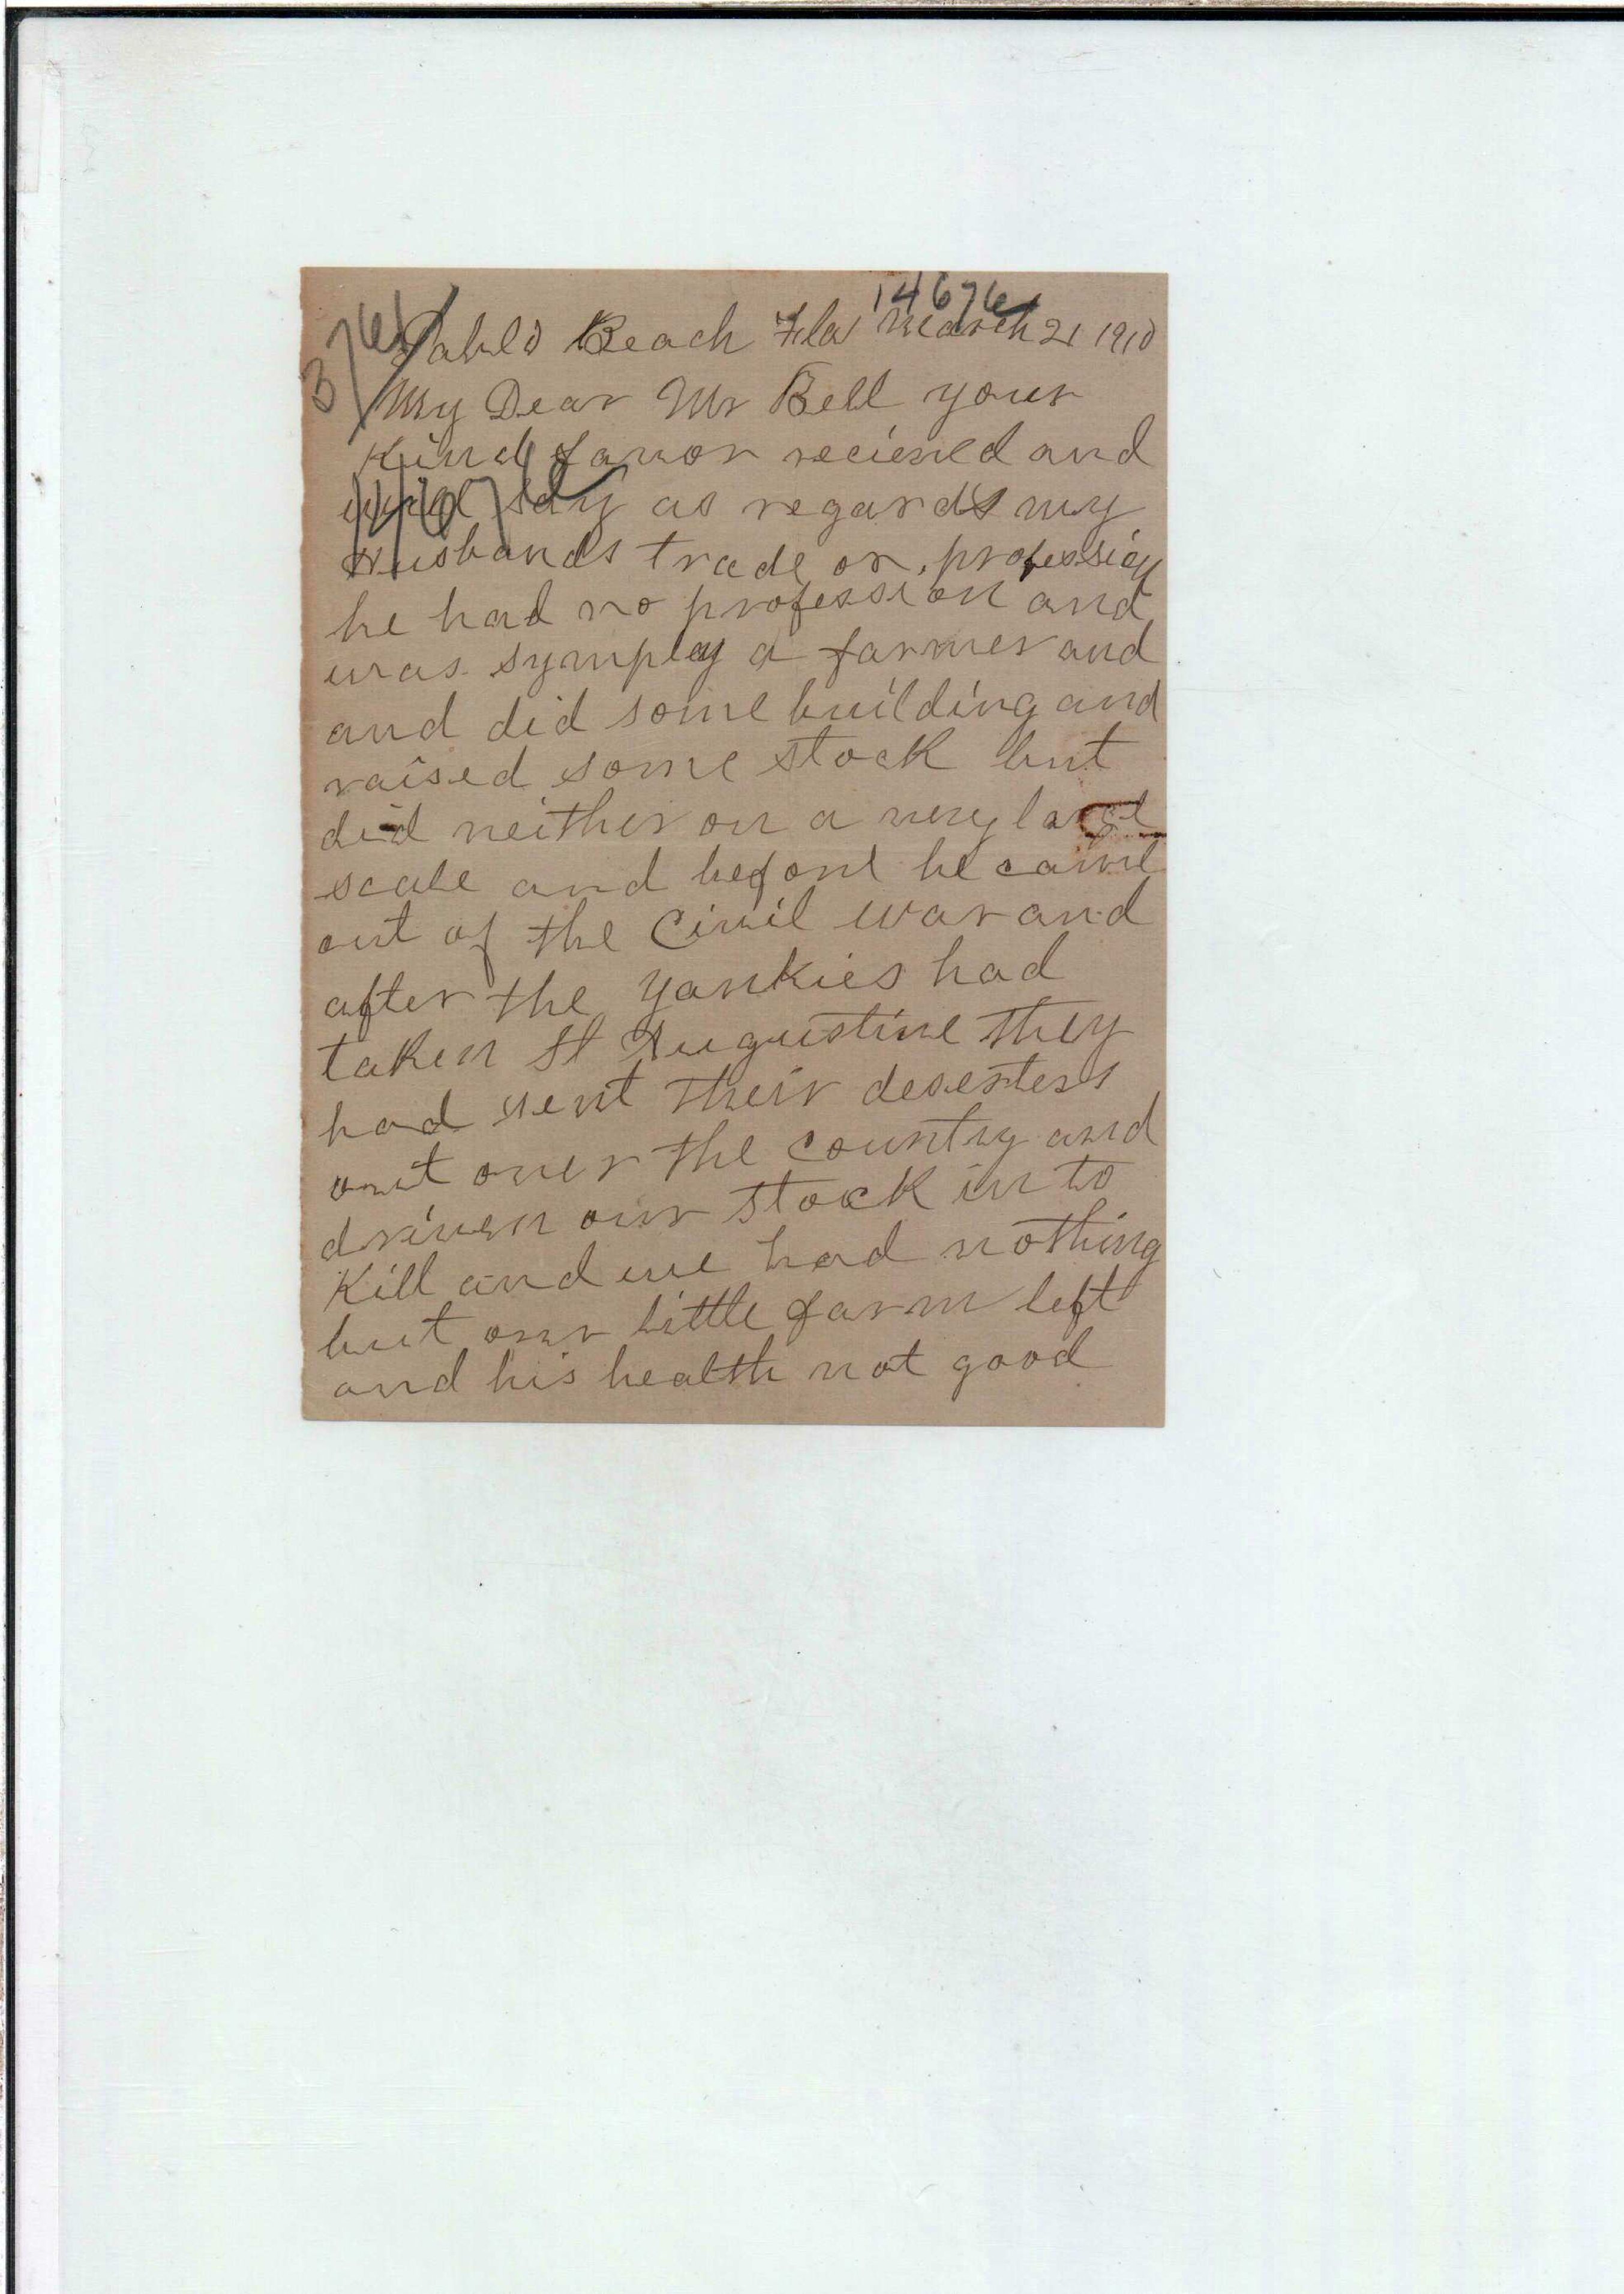 14676
Pablo Beach Fla March 21 1910
My Dear Mr Bell your
Kind favor recieved and
will say as regards my
Husbands trade or profession
he had no profession and
was symplay a farmer and
and did some building and
raised some stock but
did neither on a very large
scale and before he came
out of the Civil war and
after the Yankies had
taken St Augustine they
had sent their deserters
out over the country and
driven our stock in to
Kill and we had nothing
but our little farm left
and his health not good